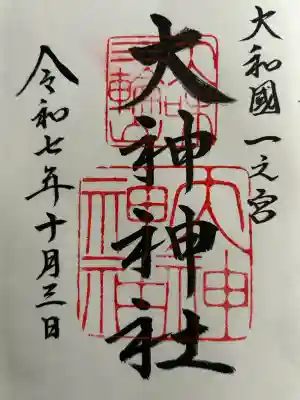 大和國一之宮
大神神社
令和七年十月三日